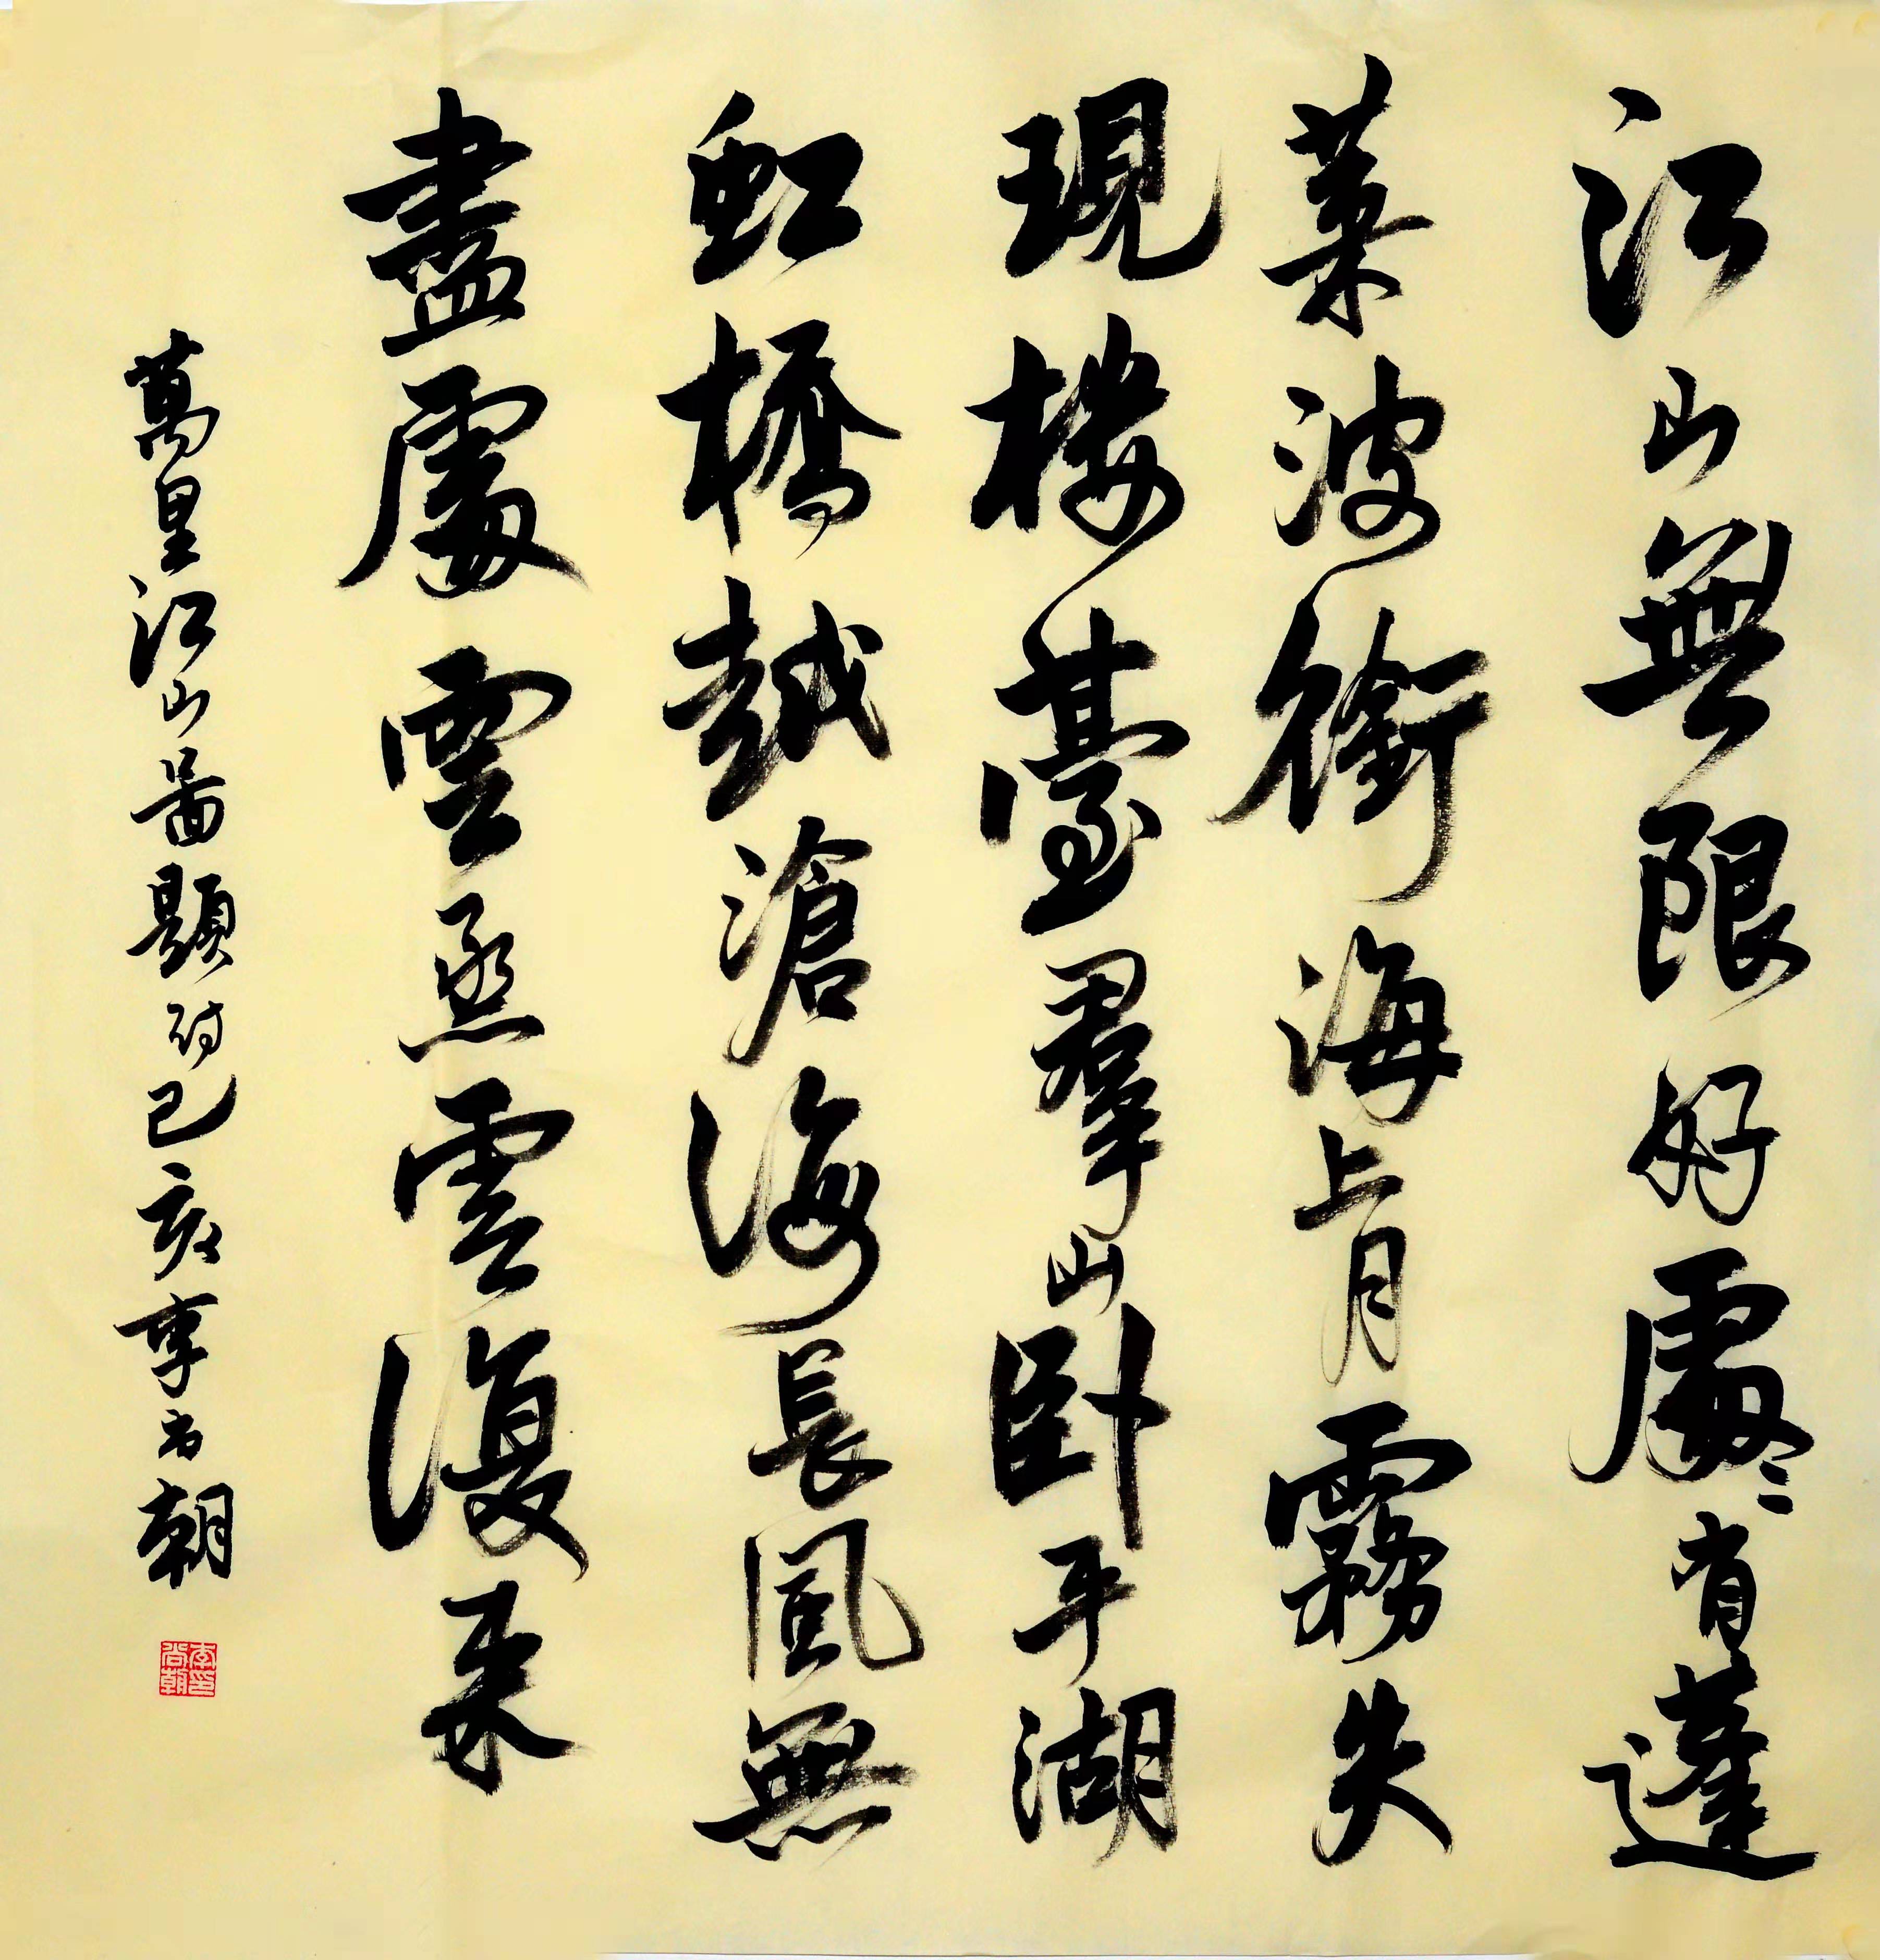 江山無限好處處有蓬
萊波銜海上月霧失
現樓臺羣山卧平湖
虹橋越滄海長風無
盡處雲蒸雲復來
萬里江山圖題詩己亥李尚朝
李尚朝印